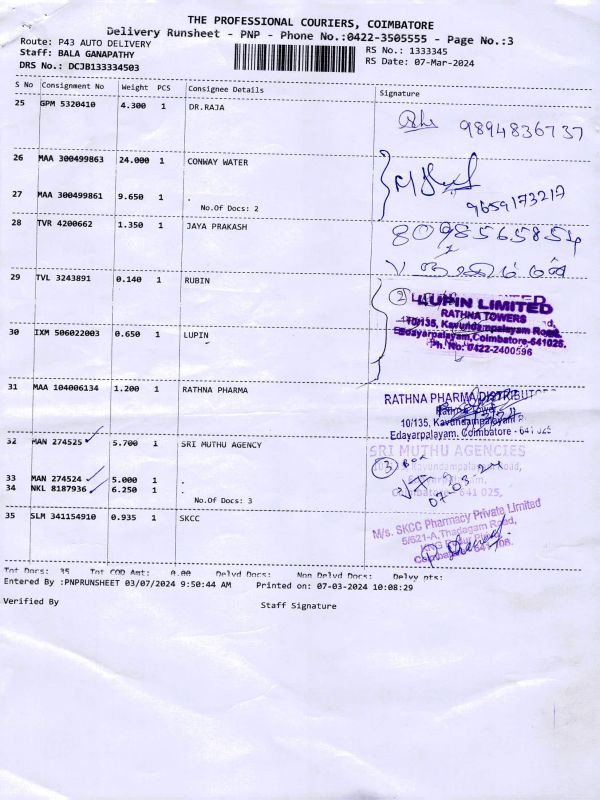 THE PROFESSIONAL COURIERS, COIMBATORE
Delivery Runsheet - PNP - Phone No.:0422-3505555 - Page No.:3
Route: P43 AUTO DELIVERY
RS No.: 1333345
Staff: BALA GANAPATHY
RS Date: 07-Mar-2024
DRS No.: DCJB133334503
S No Consignment No Weight PCS Consignee Details Signature
25 GPM 5320410 4.300 1 DR.RAJA
9894836737
26 MAA 300499863 24.000 1 CONWAY WATER
27 MAA 300499861 9.650 1 .
9659173217
No.Of Docs: 2
28 TVR 4200662 1.350 1 JAYA PRAKASH
8098565854
29 TVL 3243891 0.140 1 RUBIN
2
LUPIN LIMITED
RATHNA TOWERS
10/135, Kavundampalayam Road,
Edayarpalayam, Coimbatore-641025.
Ph. No: 0422-2400596
30 IXM 506022003 0.650 1 LUPIN
31 MAA 104006134 1.200 1 RATHNA PHARMA
RATHNA PHARMA DISTRIBUTOR
Rathna Tower
10/135, Kavundampalayam R
Edayarpalayam, Coimbatore - 641 025
32 MAN 274525 5.700 1 SRI MUTHU AGENCY
SRI MUTHU AGENCIES
Kavundampalayam Road,
3 BOX
33 MAN 274524 5.000 1 .
34 NKL 8187936 6.250 1 .
No.Of Docs: 3
Coimbatore - 641 025,
07-03-24
35 SLM 341154910 0.935 1 SKCC
M/s. SKCC Pharmacy Private Limited
5/621-A, Thadagam Road,
Tot Docs: 35 Tot COD Amt: 0.00 Delvd Docs: Non Delvd Docs: Delvy pts:
Entered By :PNPRUNSHEET 03/07/2024 9:50:44 AM Printed on: 07-03-2024 10:08:29
Verified By Staff Signature